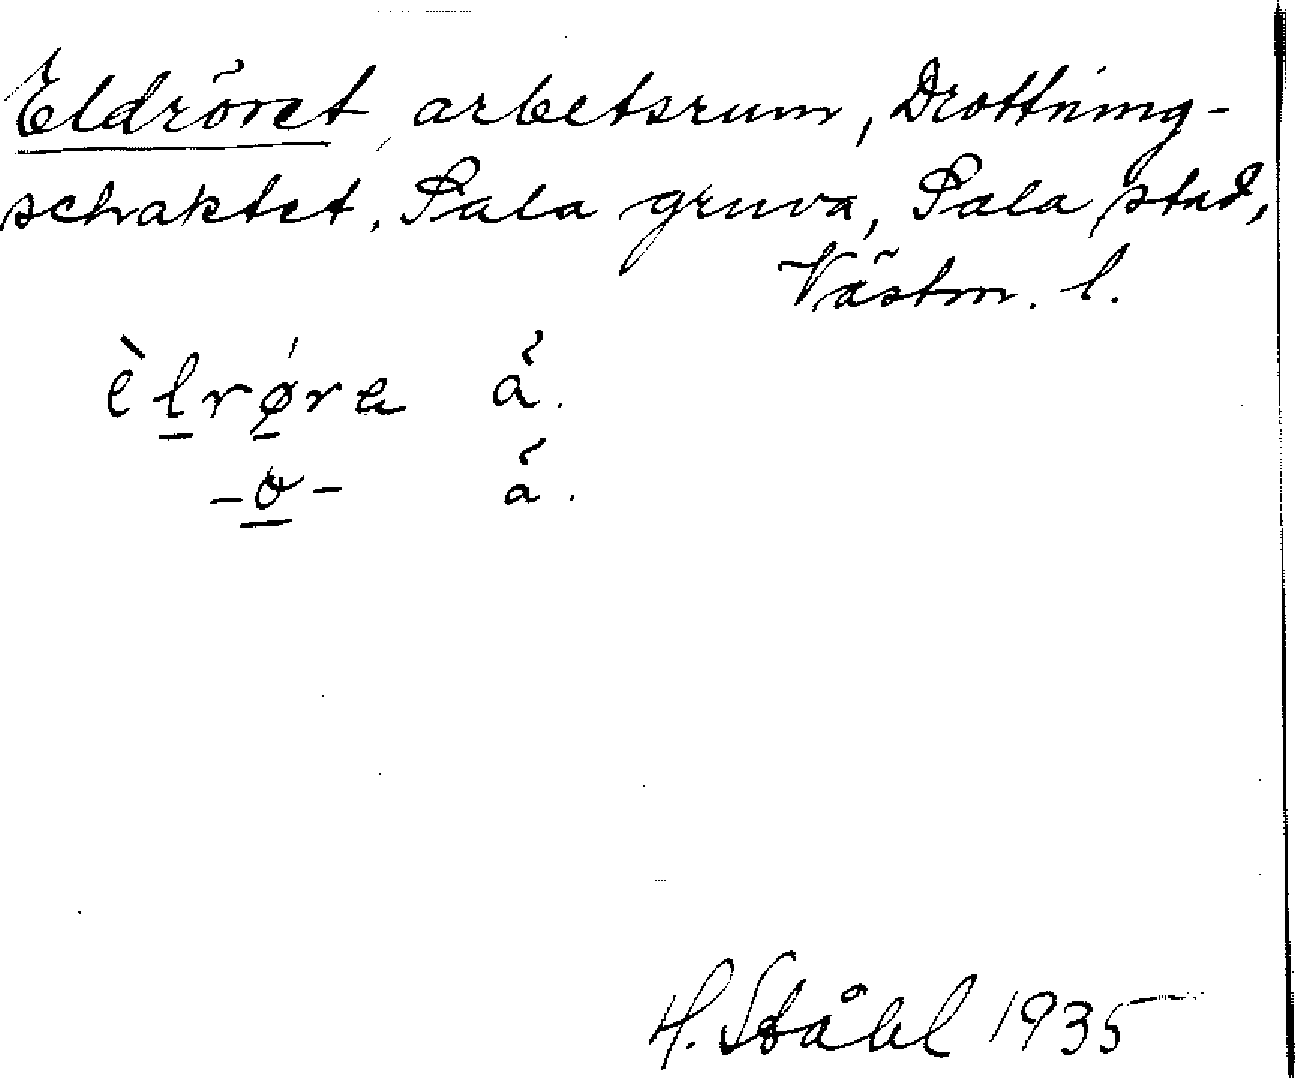 Eldröret, arbetsrum, Drottning-
schaktet, Sala gruva, Sala stad,
Västm. l.
èlrø´ra ắ.
-ö- ắ.
H. Ståhl 1935